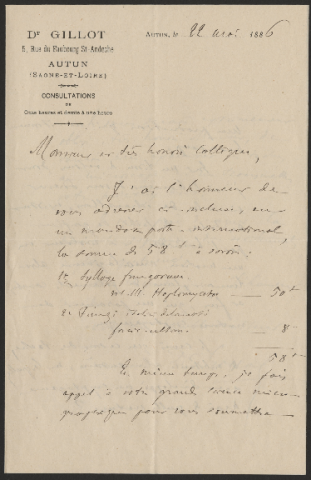 Dr GILLOT
5, Rue du Faubourg St-Andoche
AUTUN
(SAONE-ET-LOIRE)
CONSULTATIONS
DE
Onze heures et demie à une heure
AUTUN, le 22 mai 1886
Monsieur et très honoré Collègue,
J'ai l'honneur de
vous adresser ci-inclus, en
un mandat poste international,
la somme de 58 f à savoir:
1º Sylloge fungorum
vol. III — 50 f
2º Fungi italici delineati
— 8
58 f
En même temps, je fais
appel à votre grande science
pour vous soumettre —